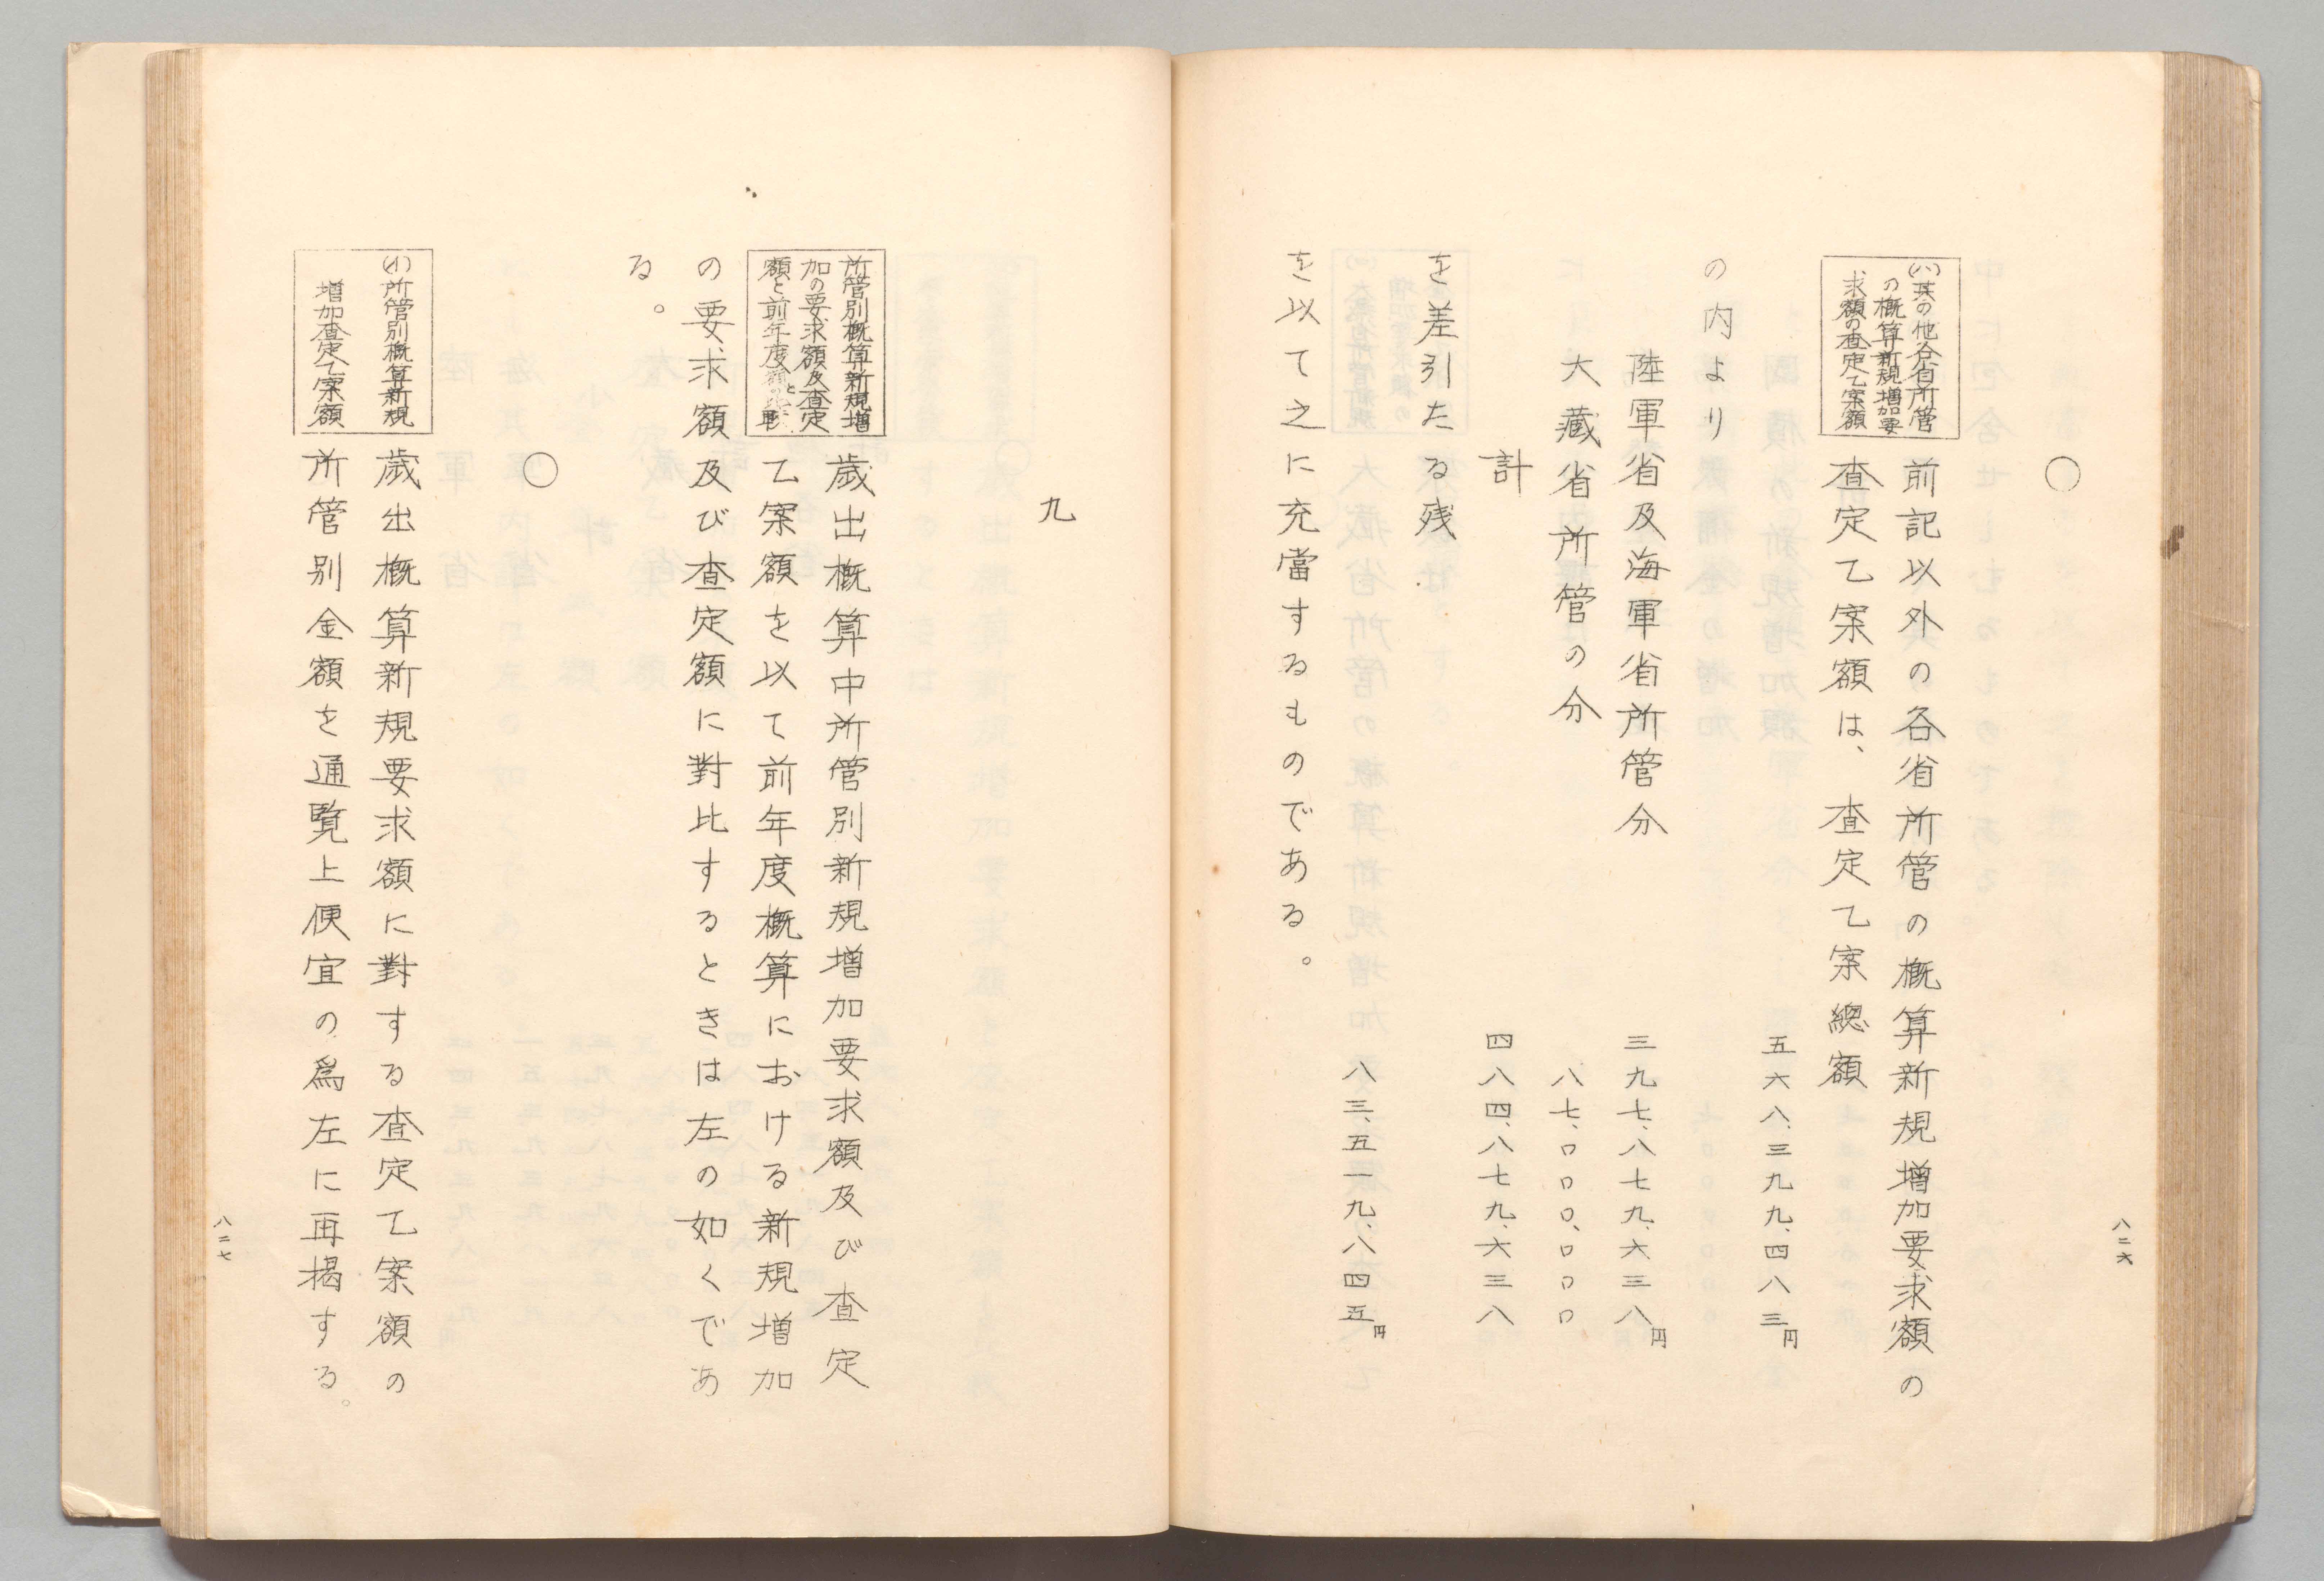 ○
(ハ)其の他各省所管
の概算新規増加要
求額の査定乙案額
前記以外の各省所管の概算新規増加要求額の
査定乙案額は、査定乙案總額
五六八、三九九、四八三円
の内より
陸軍省及海軍省所管分 三九七、八七九、六三八円
大藏省所管の分 八七、〇〇〇、〇〇〇
計 四八四、八七九、六三八
を差引たる残
八三、五一九、八四五円
を以て之に充當するものである。
八二六
九
所管別概算新規増
加の要求額及査定
額と前年度額との比較
歳出概算中所管別新規増加要求額及び査定
乙案額を以て前年度概算における新規増加
の要求額及び査定額に對比するときは左の如くであ
る。
○
(イ)所管別概算新規
増加査定乙案額
歳出概算新規要求額に對する査定乙案額の
所管別金額を通覧上便宜の為左に再掲する。
八二七